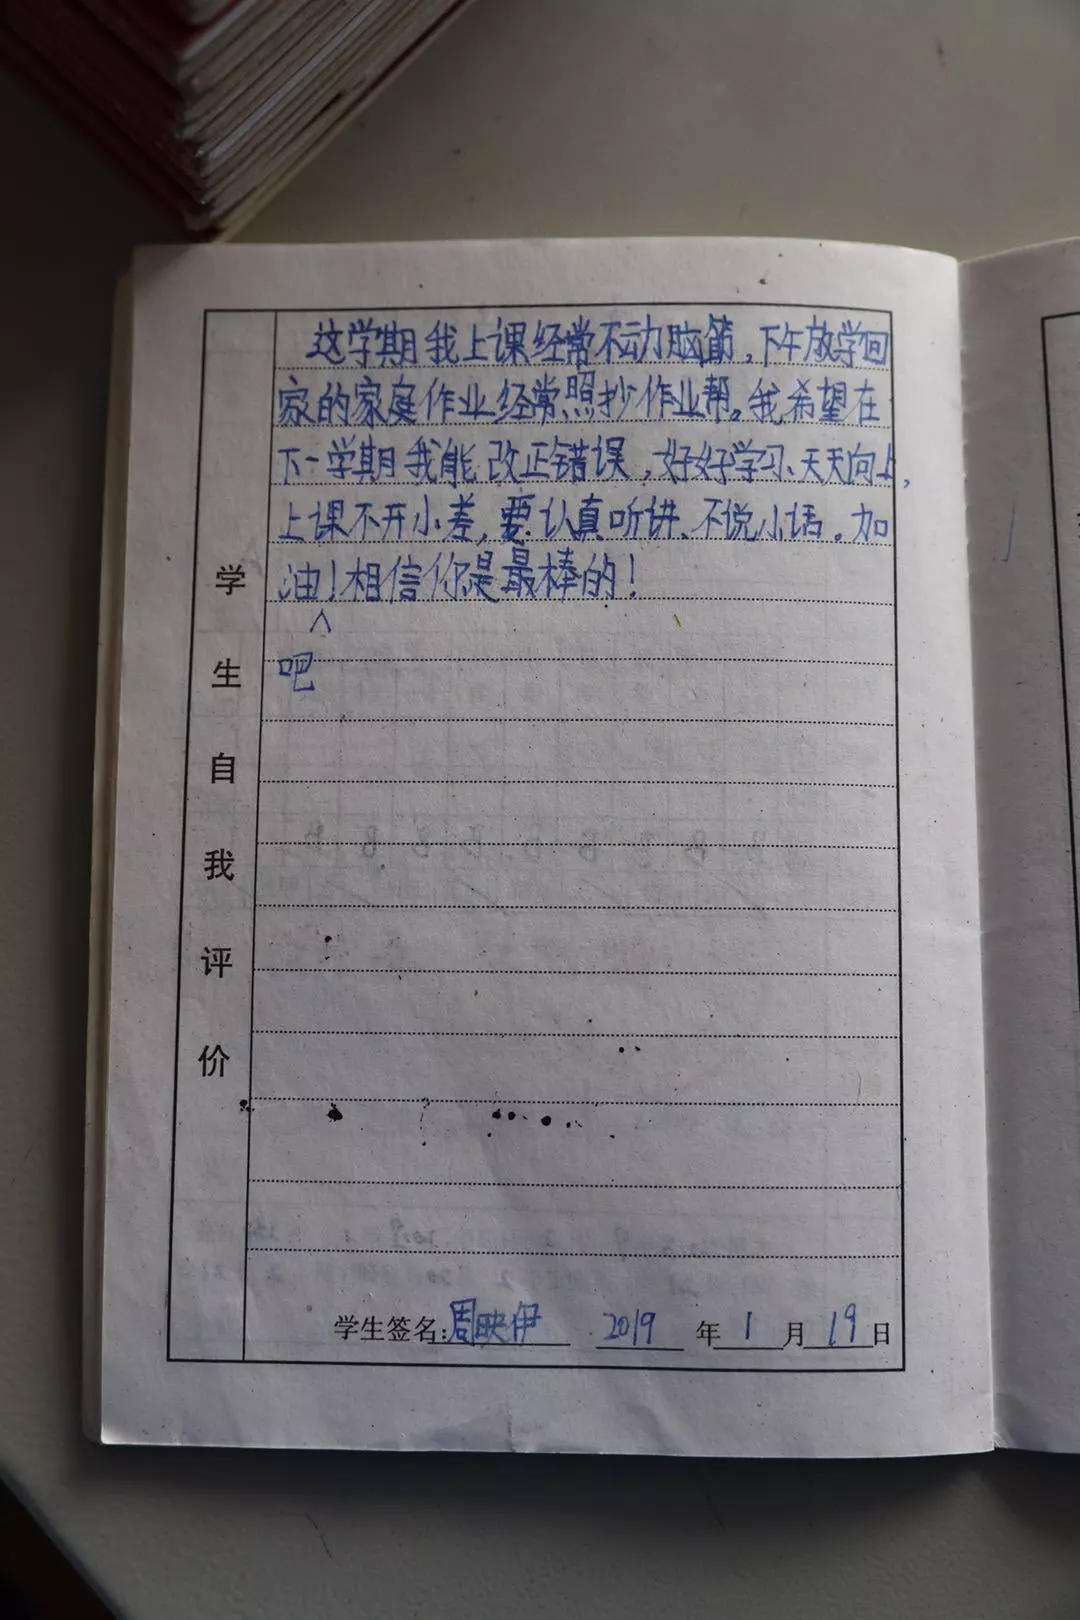 这学期我上课经常不动脑筋，下午放学回
家的家庭作业经常照抄作业帮。我希望在
下一学期我能改正错误，好好学习、天天向上，
上课不开小差，要认真听讲、不说小话。加
油！相信你是最棒的！
吧
学生自我评价
学生签名：周映伊 2019年1月19日